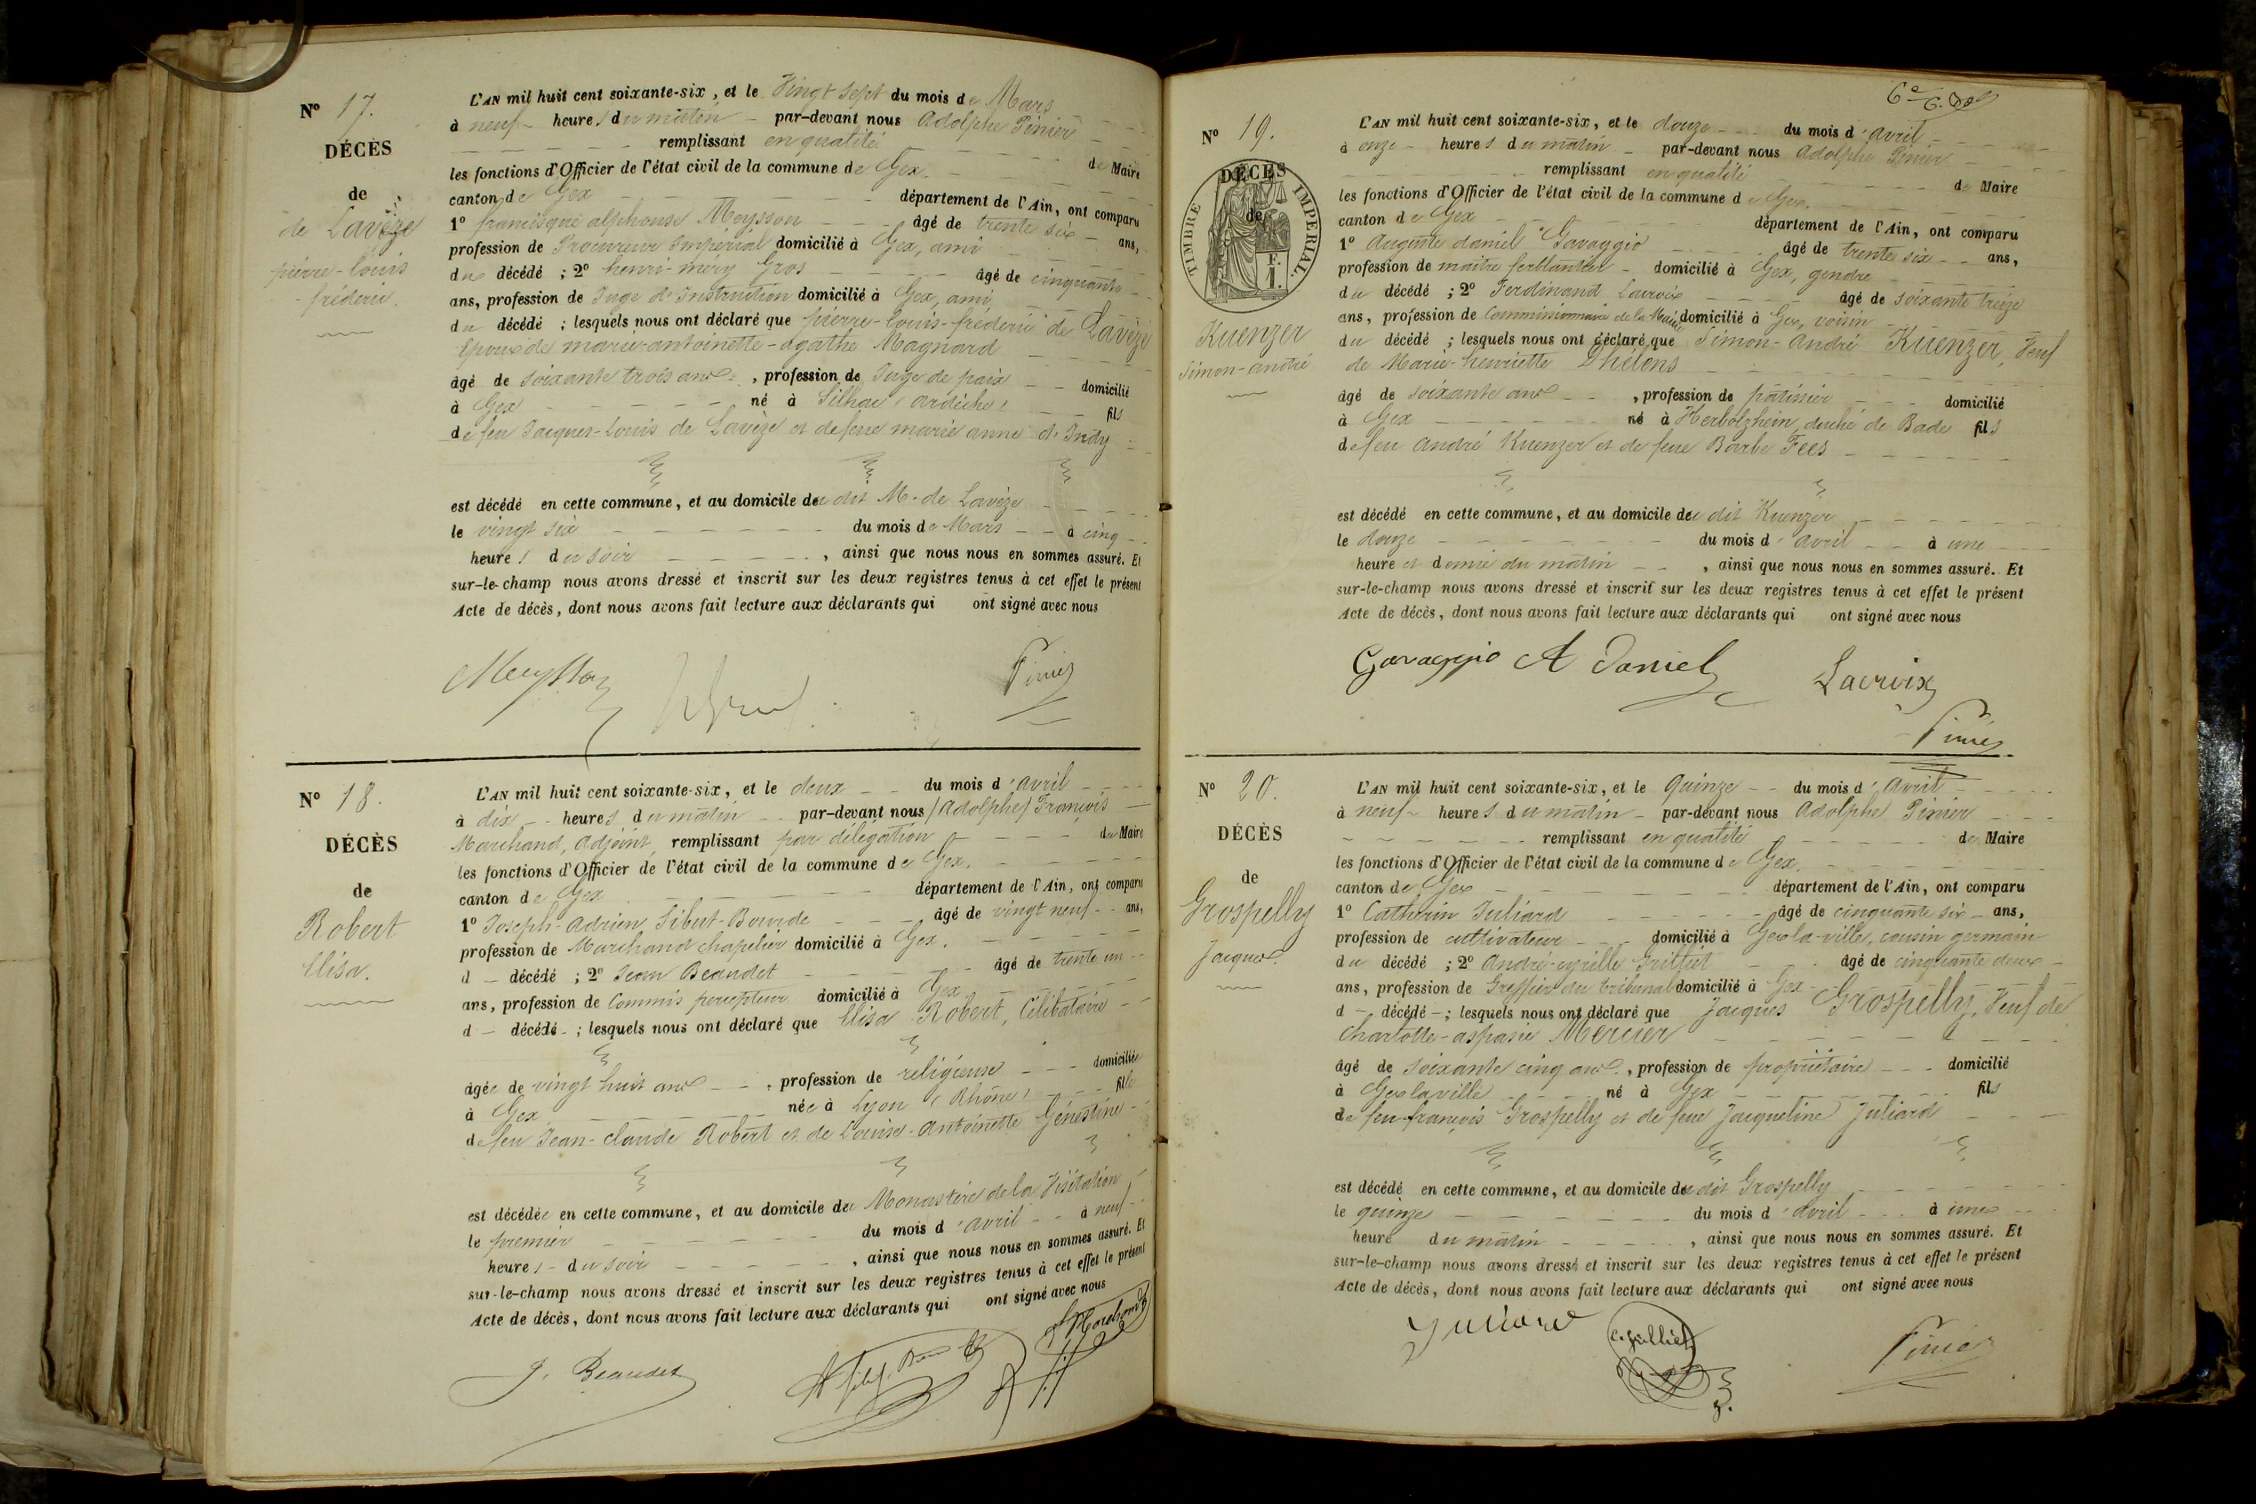 N° 17.
DÉCÈS
de
de Lavèze
pierre-louis
-fréderic.
L'AN mil huit cent soixante-six, et le Vingt Sept du mois de Mars
à neuf heures du matin par-devant nous Adolphe Pinier
remplissant en qualité de Maire
les fonctions d'Officier de l'état civil de la commune de Gex.
canton de Gex département de l'Ain, ont comparu
1° francisque alphonse Meysson âgé de trente six ans,
profession de Procureur Impérial domicilié à Gex, ami
du décédé ; 2° henri-méry Gros âgé de cinquante
ans, profession de Juge d'Instruction domicilié à Gex, ami
du décédé ; lesquels nous ont déclaré que pierre-Louis-fréderic de Lavèze
époux de marie-antoinette-agathe Magnard
âgé de soixante trois ans , profession de Juge de paix domicilié
à Gex né à Silhac (ardèche) fils
de feu Jacques-Louis de Lavèze et de feue marie anne d'Indy
est décédé en cette commune, et au domicile du dit M. de Lavèze
le vingt six du mois de Mars à cinq
heures du soir , ainsi que nous nous en sommes assuré. Et
sur-le-champ nous avons dressé et inscrit sur les deux registres tenus à cet effet le présent
Acte de décès, dont nous avons fait lecture aux déclarants qui ont signé avec nous
Meysson Pinier
N° 18.
DÉCÈS
de
Robert
Elisa.
L'AN mil huit cent soixante-six, et le deux du mois d'avril
à dix heures du matin par-devant nous (Adolphe) François
Marchand, adjoint, remplissant par délégation du Maire
les fonctions d'Officier de l'état civil de la commune de Gex.
canton de Gex département de l'Ain, ont comparu
1° Joseph-Adrien Sibut-Bourde âgé de vingt neuf ans,
profession de Marchand chapelier domicilié à Gex.
d décédé ; 2° Jean Beaudet âgé de trente un
ans, profession de Commis percepteur domicilié à Gex
d décédé ; lesquels nous ont déclaré que Elisa Robert, Célibataire
âgée de vingt huit ans , profession de religieuse domiciliée
à Gex née à Lyon (Rhône) fille
de feu Jean-claude Robert et de Louise-Antoinette Génestine
est décédée en cette commune, et au domicile du Monastère de la Visitation
le premier du mois d'avril à neuf
heures du soir , ainsi que nous nous en sommes assuré. Et
sur-le-champ nous avons dressé et inscrit sur les deux registres tenus à cet effet le présent
Acte de décès, dont nous avons fait lecture aux déclarants qui ont signé avec nous
J. Beaudet Marchand
N° 19.
DÉCÈS
de
TIMBRE IMPÉRIAL.
F. 1.
Kuenzer
Simon-andré
L'AN mil huit cent soixante-six, et le douze du mois d'avril
à onze heures du matin par-devant nous Adolphe Pinier
remplissant en qualité de Maire
les fonctions d'Officier de l'état civil de la commune de Gex.
canton de Gex département de l'Ain, ont comparu
1° Auguste daniel Gavaggio âgé de trente six ans,
profession de maitre ferblantier domicilié à Gex, gendre
du décédé ; 2° Ferdinand Lacroix âgé de soixante treize
ans, profession de Commissionnaire de la Mairie domicilié à Gex, voisin
du décédé ; lesquels nous ont déclaré que Simon-André Kuenzer, Veuf
de Marie-henriette Dhélens
âgé de soixante ans , profession de pâtissier domicilié
à Gex né à Herbolzheim, duché de Bade fils
de feu André Kuenzer et de feue Barbe Fees
est décédé en cette commune, et au domicile du dit Kuenzer
le douze du mois d'avril à une
heure et demie du matin , ainsi que nous nous en sommes assuré. Et
sur-le-champ nous avons dressé et inscrit sur les deux registres tenus à cet effet le présent
Acte de décès, dont nous avons fait lecture aux déclarants qui ont signé avec nous
Gavaggio A Daniel Lacroix
Pinier
N° 20.
DÉCÈS
de
Grospelly
Jacques
L'AN mil huit cent soixante-six, et le quinze du mois d'avril
à neuf heures du matin par-devant nous Adolphe Pinier
remplissant en qualité de Maire
les fonctions d'Officier de l'état civil de la commune de Gex.
canton de Gex département de l'Ain, ont comparu
1° Catherin Juliard âgé de cinquante six ans,
profession de cultivateur domicilié à Gex la-ville, cousin germain
du décédé ; 2° André-cyrille âgé de cinquante deux
ans, profession de Greffier du tribunal domicilié à Gex
d décédé ; lesquels nous ont déclaré que Jacques Grospelly, Veuf de
Charlotte-aspasie Mercier
âgé de soixante cinq ans , profession de propriétaire domicilié
à Gex la ville né à Gex fils
de feu françois Grospelly et de feue Jacqueline Juliard
est décédé en cette commune, et au domicile du dit Grospelly
le quinze du mois d'avril à une
heure du matin , ainsi que nous nous en sommes assuré. Et
sur-le-champ nous avons dressé et inscrit sur les deux registres tenus à cet effet le présent
Acte de décès, dont nous avons fait lecture aux déclarants qui ont signé avec nous
Juliard Pinier